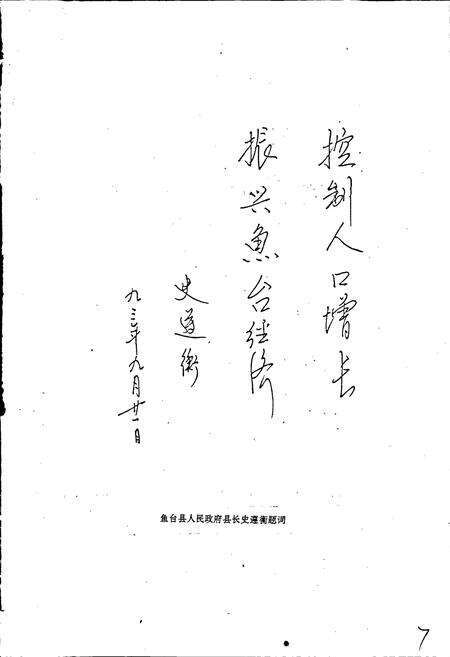 控制人口增长
振兴鱼台经济
史遵衡
九三年九月廿一日
鱼台县人民政府县长史遵衡题词
7